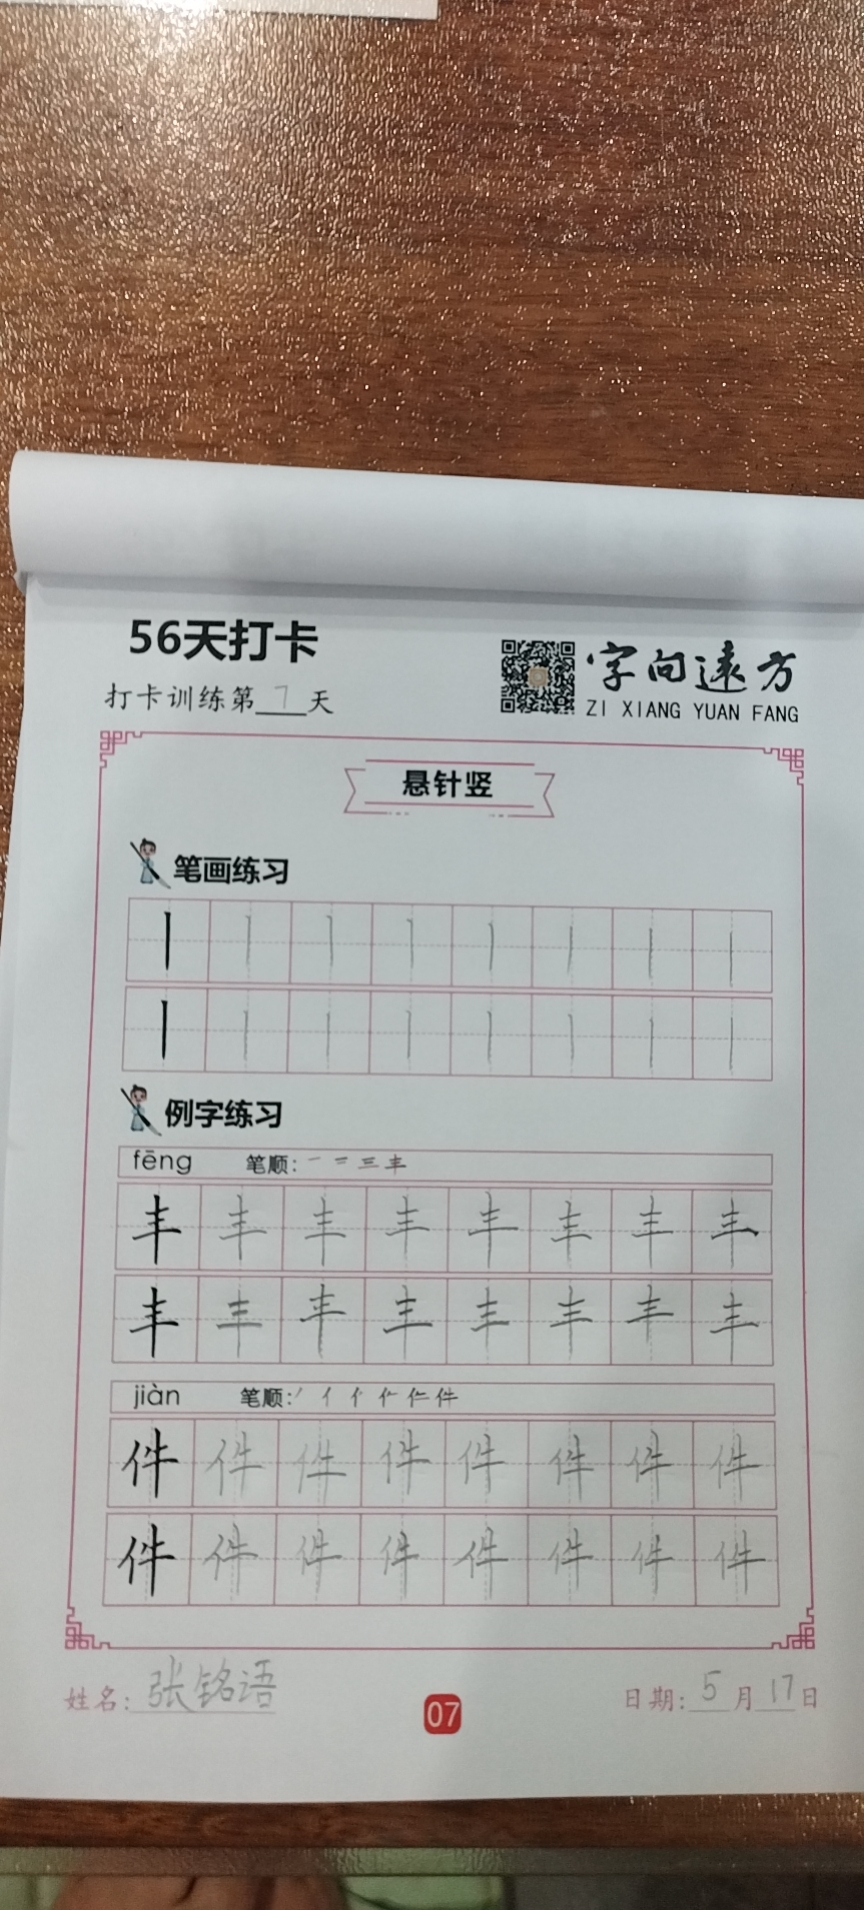 56天打卡
打卡训练第7天
字向远方
ZI XIANG YUAN FANG
悬针竖
笔画练习
丨 丨 丨 丨 丨 丨 丨 丨
丨 丨 丨 丨 丨 丨 丨 丨
例字练习
fēng 笔顺: 一 二 三 丰
丰 丰 丰 丰 丰 丰 丰 丰
丰 丰 丰 丰 丰 丰 丰 丰
jiàn 笔顺: 丿 亻 亻 亻 仁 件
件 件 件 件 件 件 件 件
件 件 件 件 件 件 件 件
姓名: 张铭语
07
日期: 5月17日